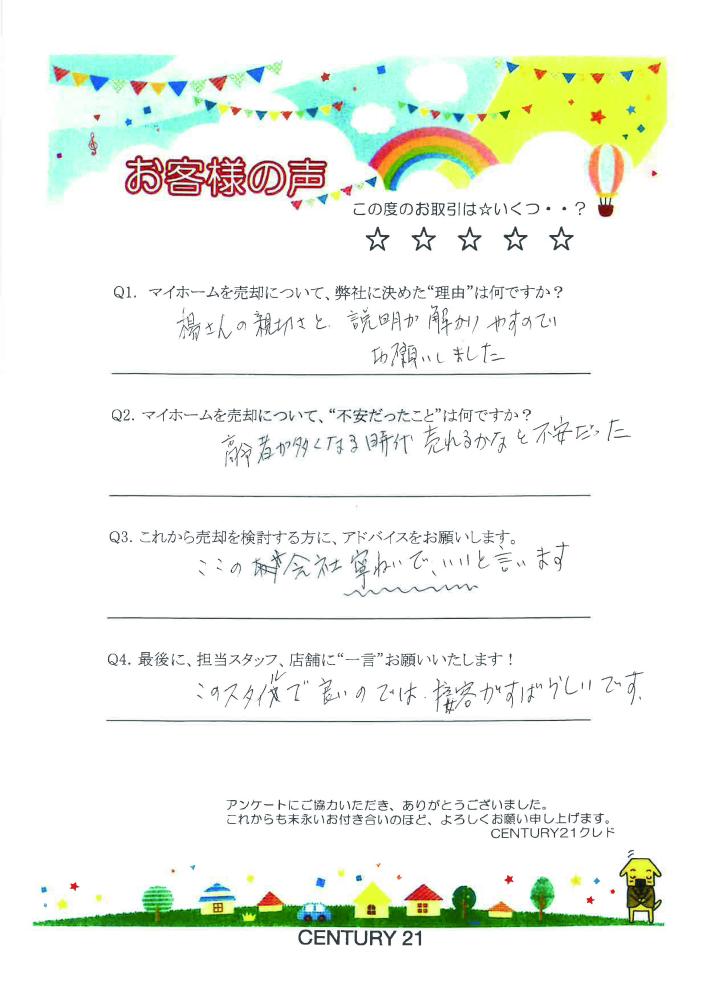 お客様の声
この度のお取引は☆いくつ・・?
☆ ☆ ☆ ☆ ☆
Q1. マイホームを売却について、弊社に決めた“理由”は何ですか?
楊さんの親切さと、説明が解かりやすのでい
お願いしました
Q2. マイホームを売却について、“不安だったこと”は何ですか?
高令者が多くなる時代 売れるかなと不安だった
Q3. これから売却を検討する方に、アドバイスをお願いします。
ここの 会社寧ねいで、いいと言います
Q4. 最後に、担当スタッフ、店舗に“一言”お願いいたします!
このスタイルで良いのでは、接客がすばらしいです。
アンケートにご協力いただき、ありがとうございました。
これからも末永いお付き合いのほど、よろしくお願い申し上げます。
CENTURY21クレド
CENTURY 21